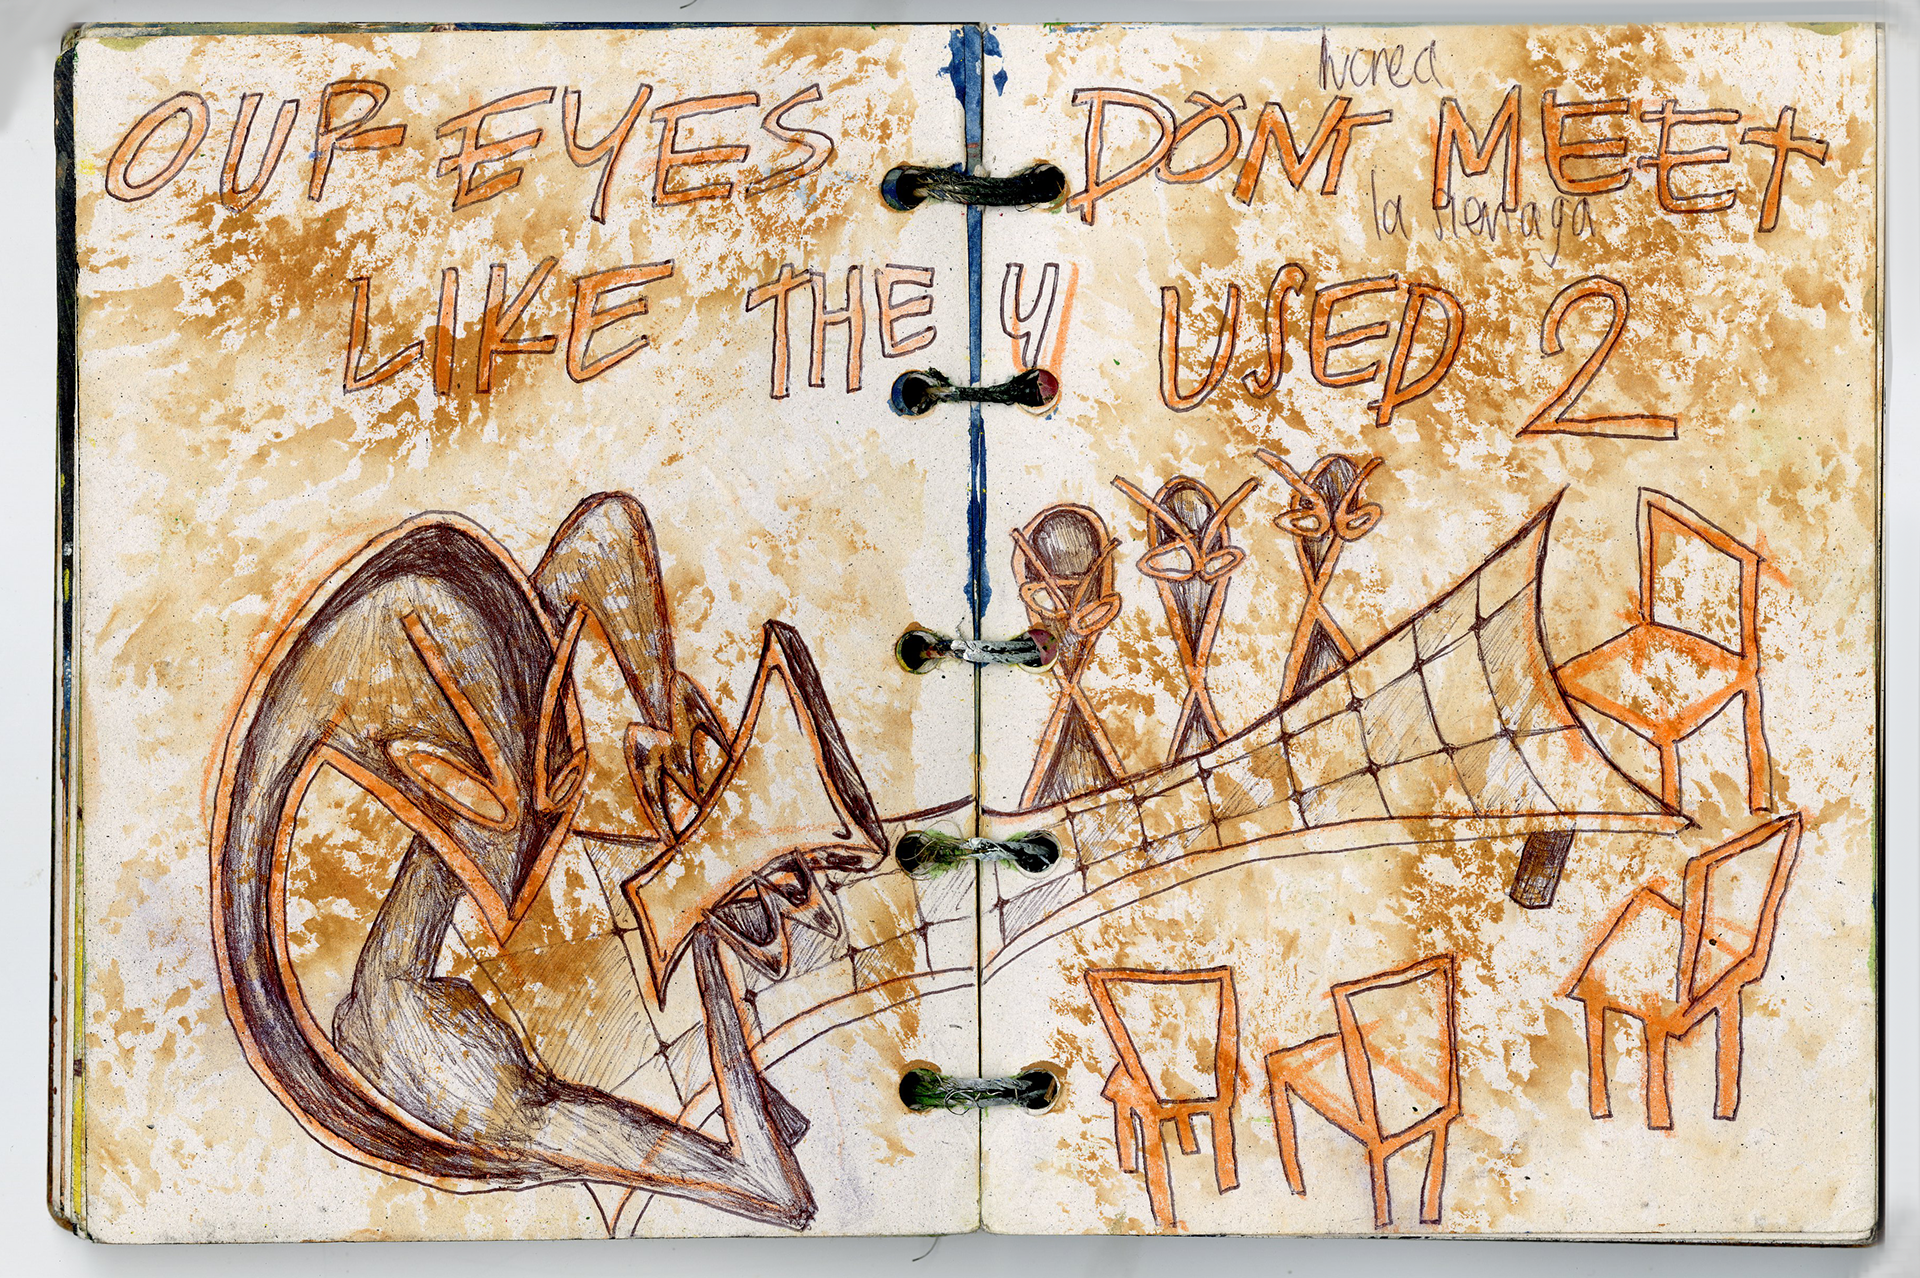 OUR EYES DONT MEEt
la
LIKE THEY USED 2